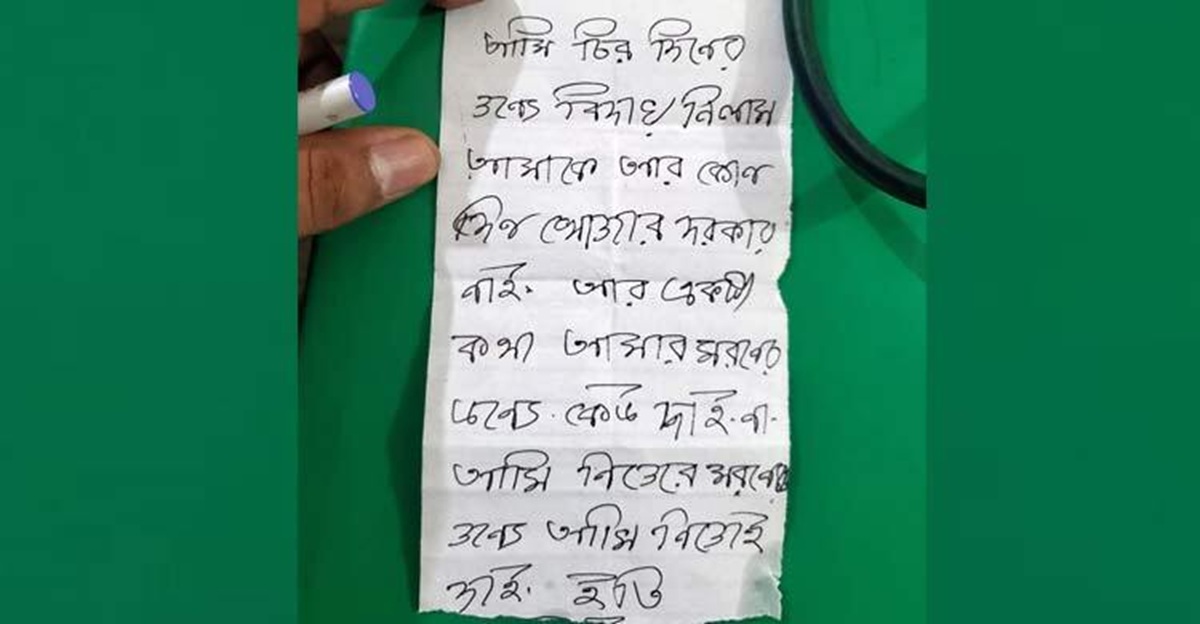 আমি চির দিনের
জন্যে বিদায় নিলাম
আমাকে আর কোন
দিন খোজার দরকার
নাই. আর একটা
কথা আমার মরনের
জন্যে. কেউ দাই. না.
আমি নিজেরে মরনের
জন্যে আমি নিজেই
দাই. ইতি